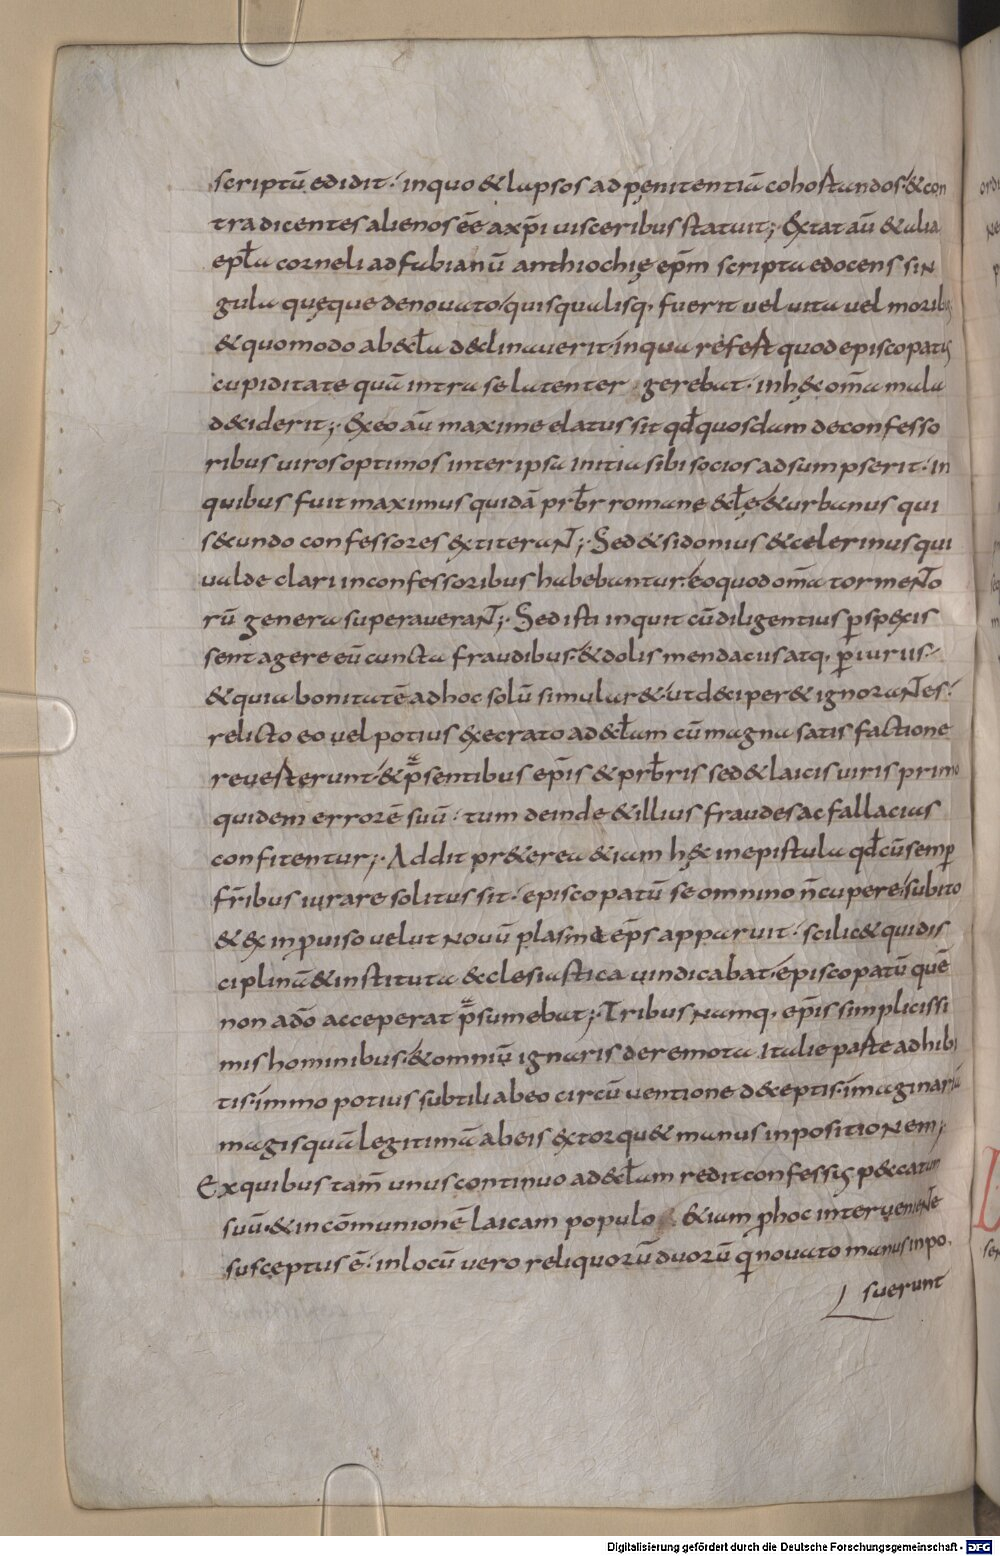 scriptū edidit. in quo & lapsos ad pęnitentiā cohortandos. & con
tradicentes alienos eē a xp̄i uisceribus statuit; Extat aū & alia
epl̄a corneli ad fabianū anthiochię ep̄m scripta edocens sin
gula quęque de nouato. quis qualisq, fuerit uel uita uel moribus
& quomodo ab ęccl̄a declinauerit in qua refert quod episcopatus
cupiditate quā intra se latenter gerebat. in hęc om̄a mala
deciderit; Ex eo aū maxime elatus sit qd̄ quosdam de confesso
ribus uiros optimos inter ipsa initia sibi socios adsumpserit. in
quibus fuit maximus quidā prb̄r romane eccl̄ę & urbanus qui
secundo confessores extiterant; Sed & sidonius & celerinus qui
ualde clari in confessoribus habebantur. eo quod om̄a tormento
rū genera superauerant; Sed isti inquit cū diligentius p̱spexis
sent agere eū cuncta fraudibus. & dolis mendaciis atq, p̱iuriis.
& quia bonitatē ad hoc solū simular& ut deciper& ignorantes.
relicto eo uel potius execrato ad eccl̄am cū magna satisfactione
reuerterunt. & p̄sentibus ep̄is & prb̄ris sed & laicis uiris primo
quidem errorē suū. tum deinde & illius fraudes ac fallacias
confitentur; Addit pr&erea &iam hęc in epistula qd̄ cū semp̱
fr̄ibus iurare solitus sit. episcopatū se omnino n̄ cupere. subito
& ex inp̱uiso uelut nouū plasma ep̄s apparuit. scilic& qui dis
ciplinā & instituta ecclesiastica uindicabat. episcopatū quē
non a dō acceperat p̄sumebat; Tribus namq, ep̄is simplicissi
mis hominibus. & omniū ignaris de remota italie parte adhibi
tis. immo potius subtili ab eo circūuentione deceptis. imaginariā
magis quā legitimā ab eis extorqu& manus inpositionem;
Ex quibus tam̄ unus continuo ad eccl̄am redit confessus peccatum
suū. & in cōmunionē laicam populo &iam p̱ hoc interueniente
susceptus ē. in locū uero reliquorū duorū qui nouato manus inpo
suerunt
Digitalisierung gefördert durch die Deutsche Forschungsgemeinschaft - DFG